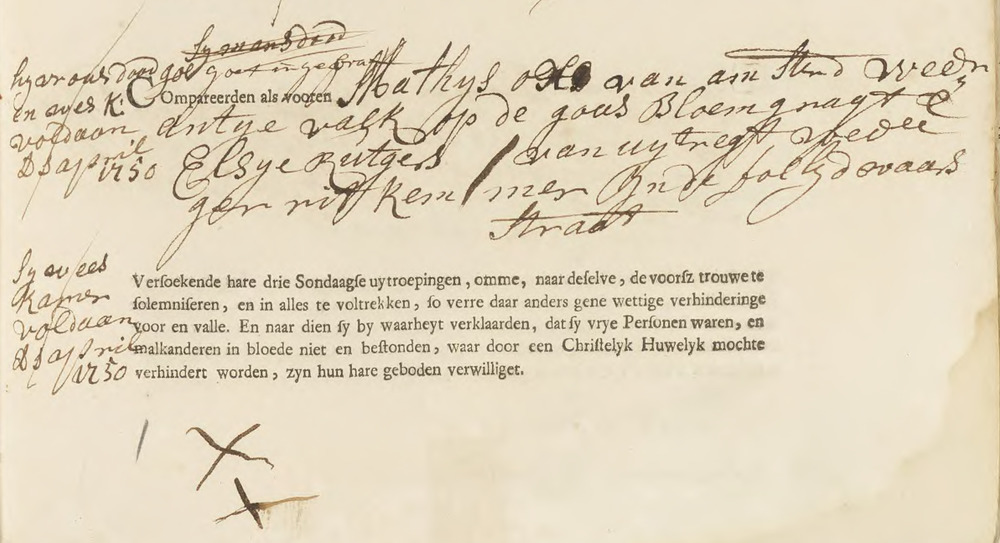 sy mans dood
goet ingebragt
hy vrous dood goet
en wees K:
voldaan
D 5 april
1750
Compareerden als vooren Mathys van amsterd wedr
antye valk op de gous Bloemgragt &
Elsye Rutgers van uytregt wedee
gerrit kemmer Jnde
straat
sy wees
Kamer
voldaan
D 5 april
1750
Versoekende hare drie Sondaagse uytroepingen, omme, naar deselve, de voorsz trouwe te
solemniseren, en in alles te voltrekken, so verre daar anders gene wettige verhinderinge
voor en valle. En naar dien sy by waarheyt verklaarden, dat sy vrye Personen waren, en
malkanderen in bloede niet en bestonden, waar door een Christelyk Huwelyk mochte
verhindert worden, zyn hun hare geboden verwilliget.